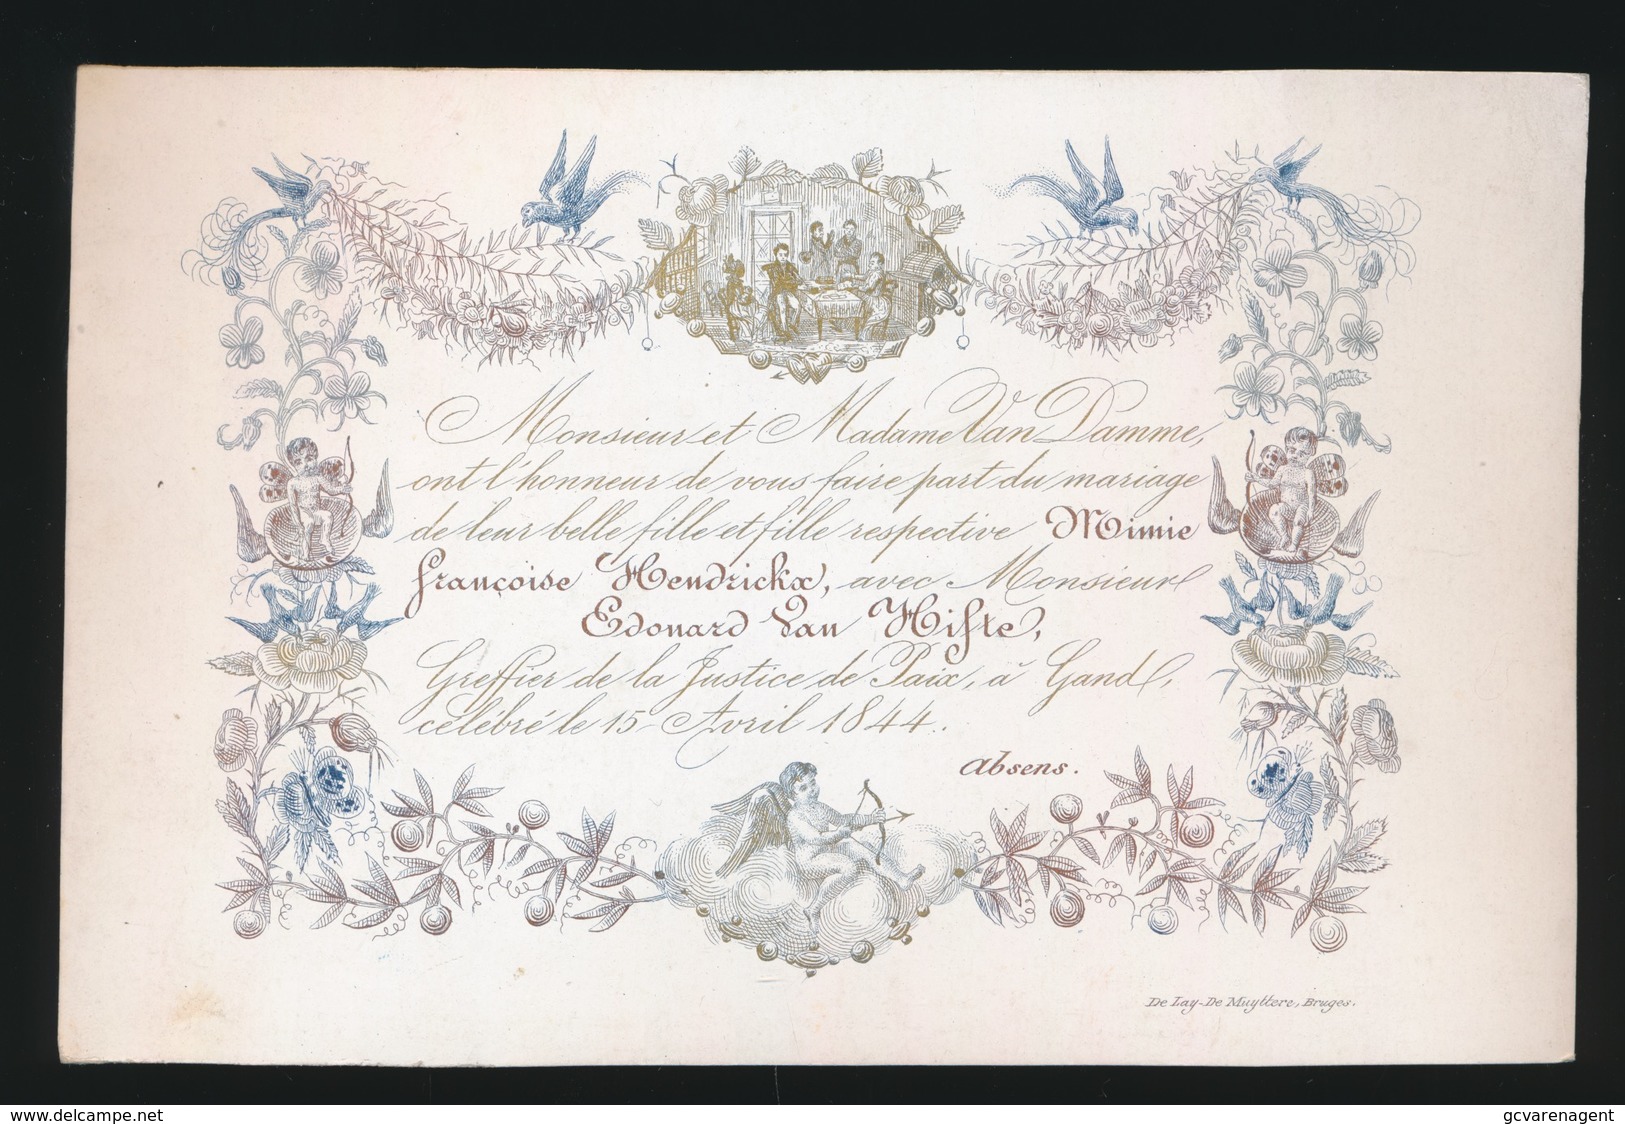 Monsieur et Madame Van Damme,
ont l'honneur de vous faire part du mariage
de leur belle fille et fille respective Mimie
françoise Hendrickx, avec Monsieur
Edouard Van Hifte,
Greffier de la Justice de Paix, à Gand,
célébré le 15 Avril 1844.
Absens.
De Lay-De Muyttere, Bruges.
delcampe.net
gcvarenagent